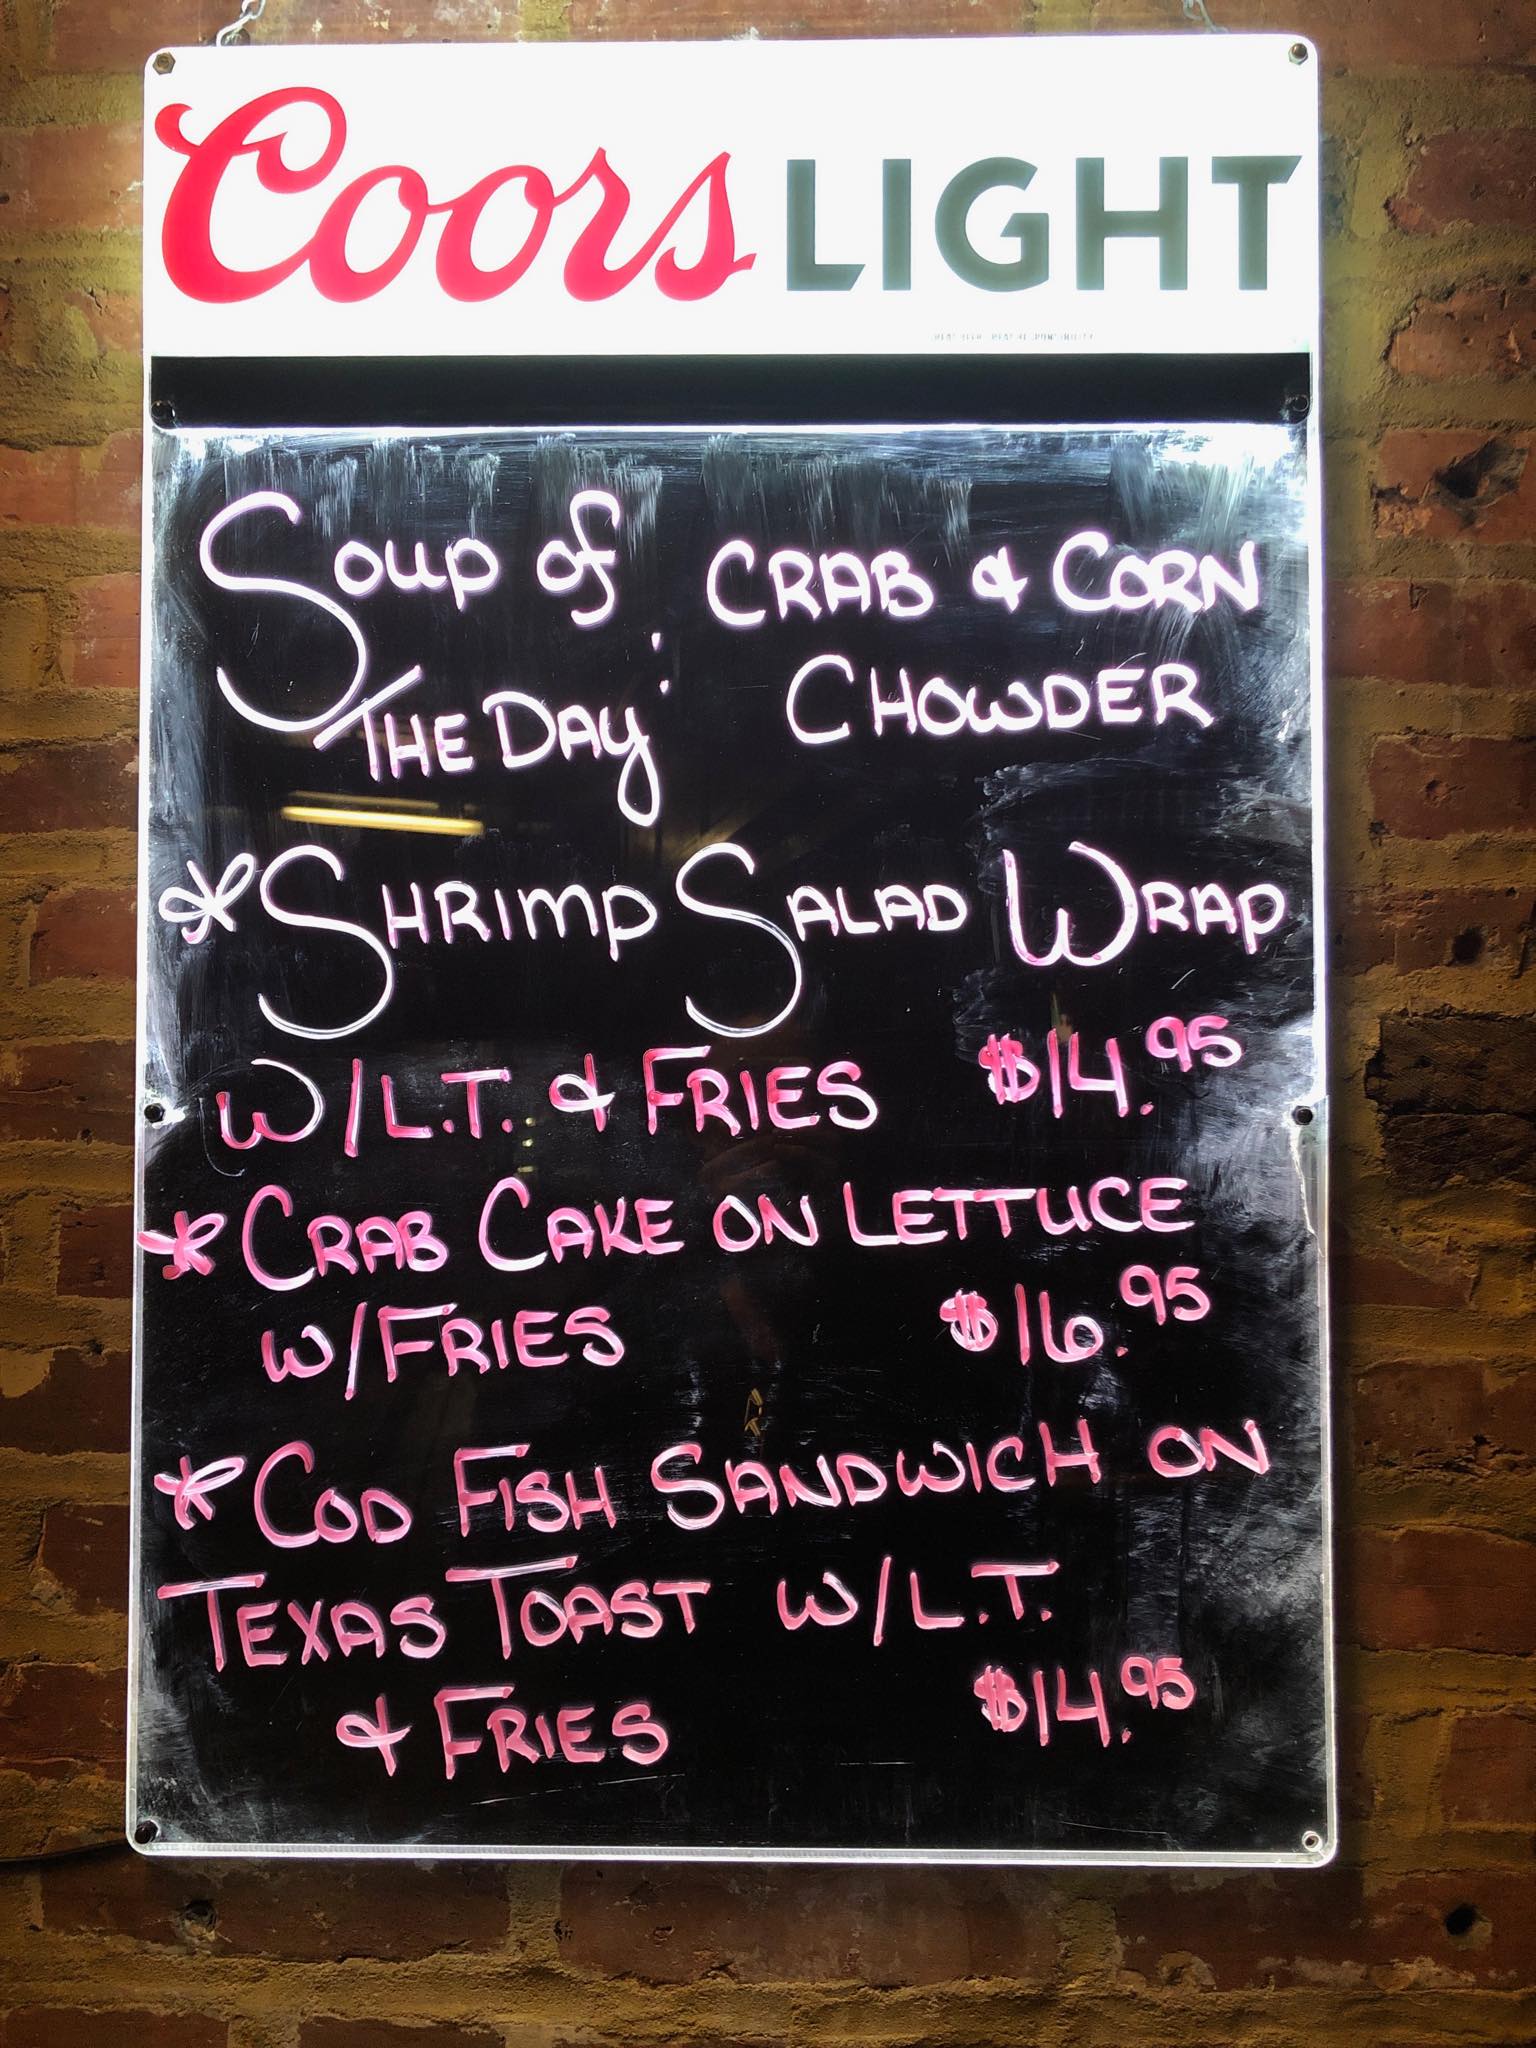 Coors LIGHT
GREAT BEER GREAT RESPONSIBILITY
Soup of CRAB & CORN
THE DAY: CHOWDER
* SHRIMP SALAD WRAP
W/L.T. & FRIES $14.95
* CRAB CAKE ON LETTUCE
W/FRIES $16.95
* COD FISH SANDWICH ON
TEXAS TOAST W/L.T.
& FRIES $14.95